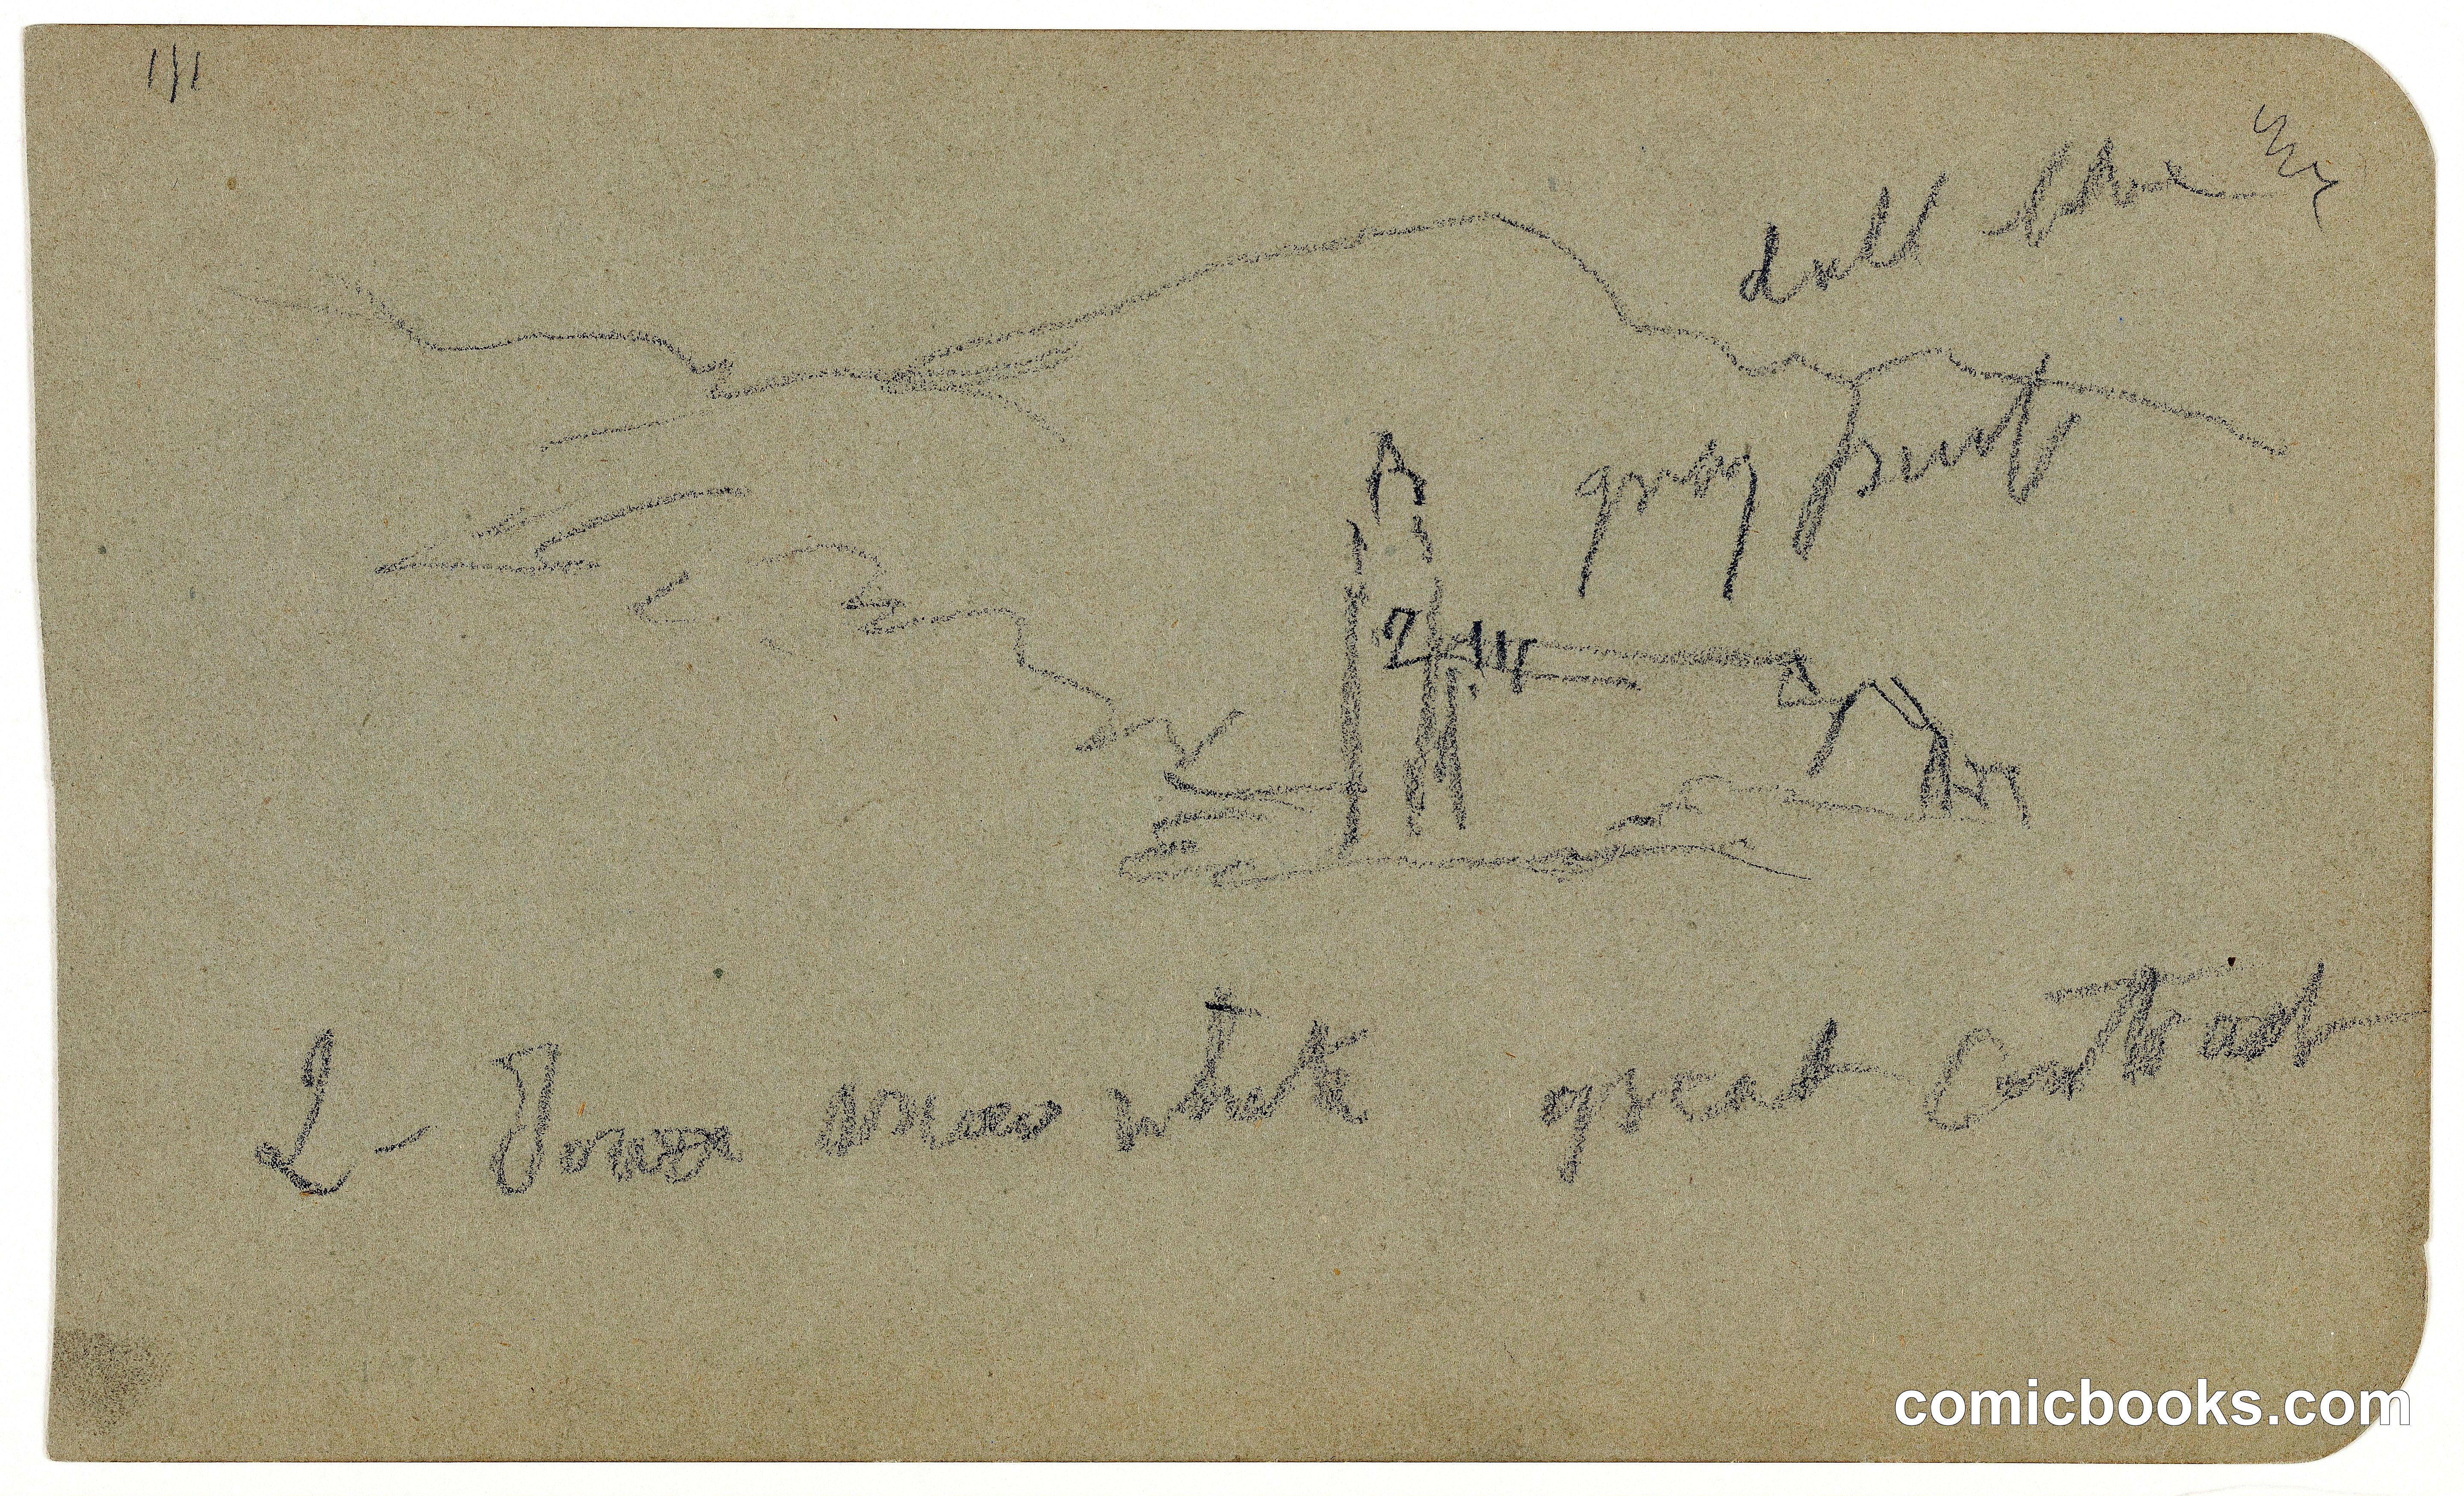 171
dull blue
gray purp
2
2 - Tower snow white great Contrast
comicbooks.com